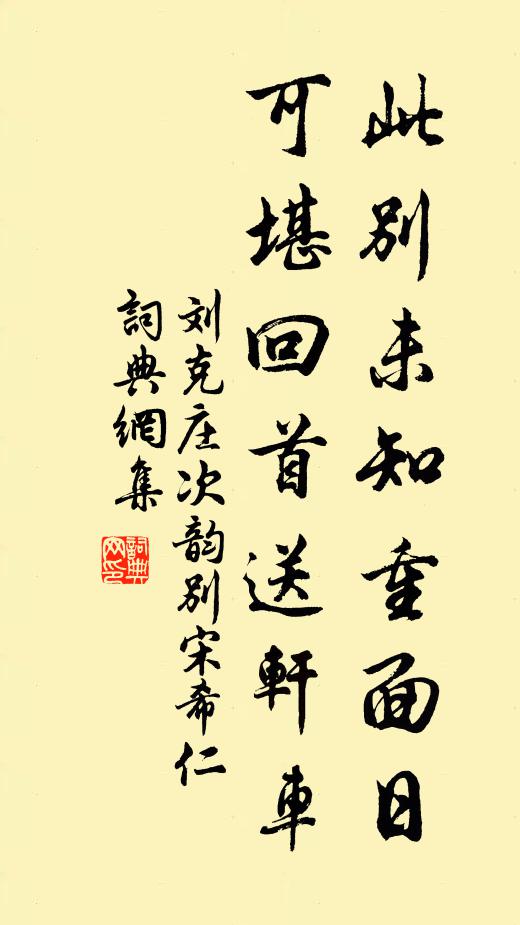 此别未知重面日
可堪回首送軒車
刘克庄次韵别宋希仁
詞典網集
詞典
网印